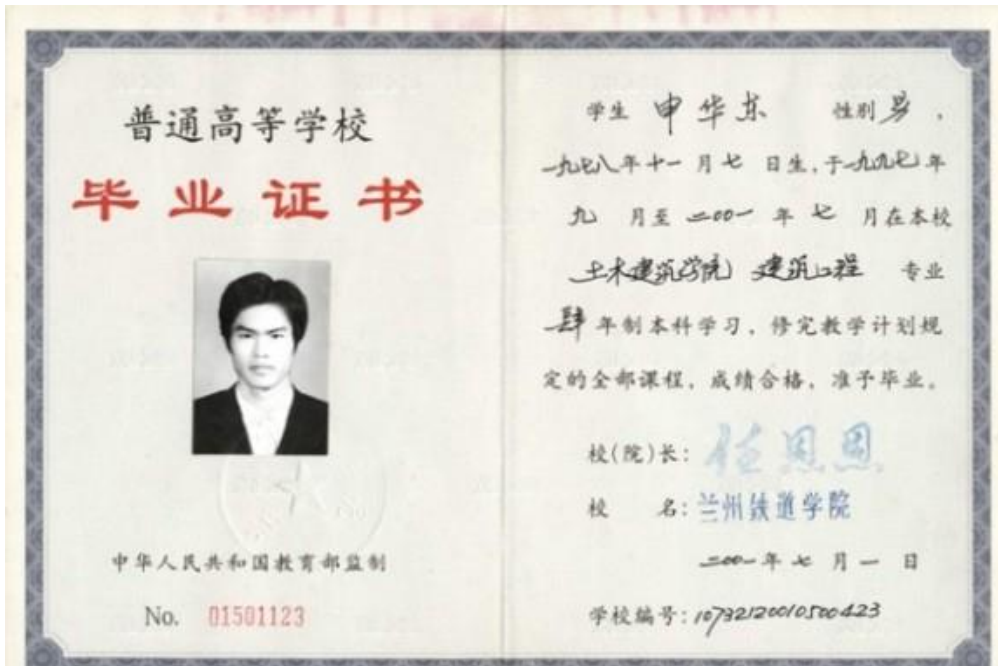 普通高等学校
毕业证书
中华人民共和国教育部监制
No. 01501123
学生 申华东 性别 男，
一九七八年十一月七日生，于一九九七年
九月至二〇〇一年七月在本校
土木建筑学院 建筑工程 专业
肆年制本科学习，修完教学计划规
定的全部课程，成绩合格，准予毕业。
校(院)长：任恩恩
校 名：兰州铁道学院
二〇〇一年七月一日
学校编号：10732120010500423